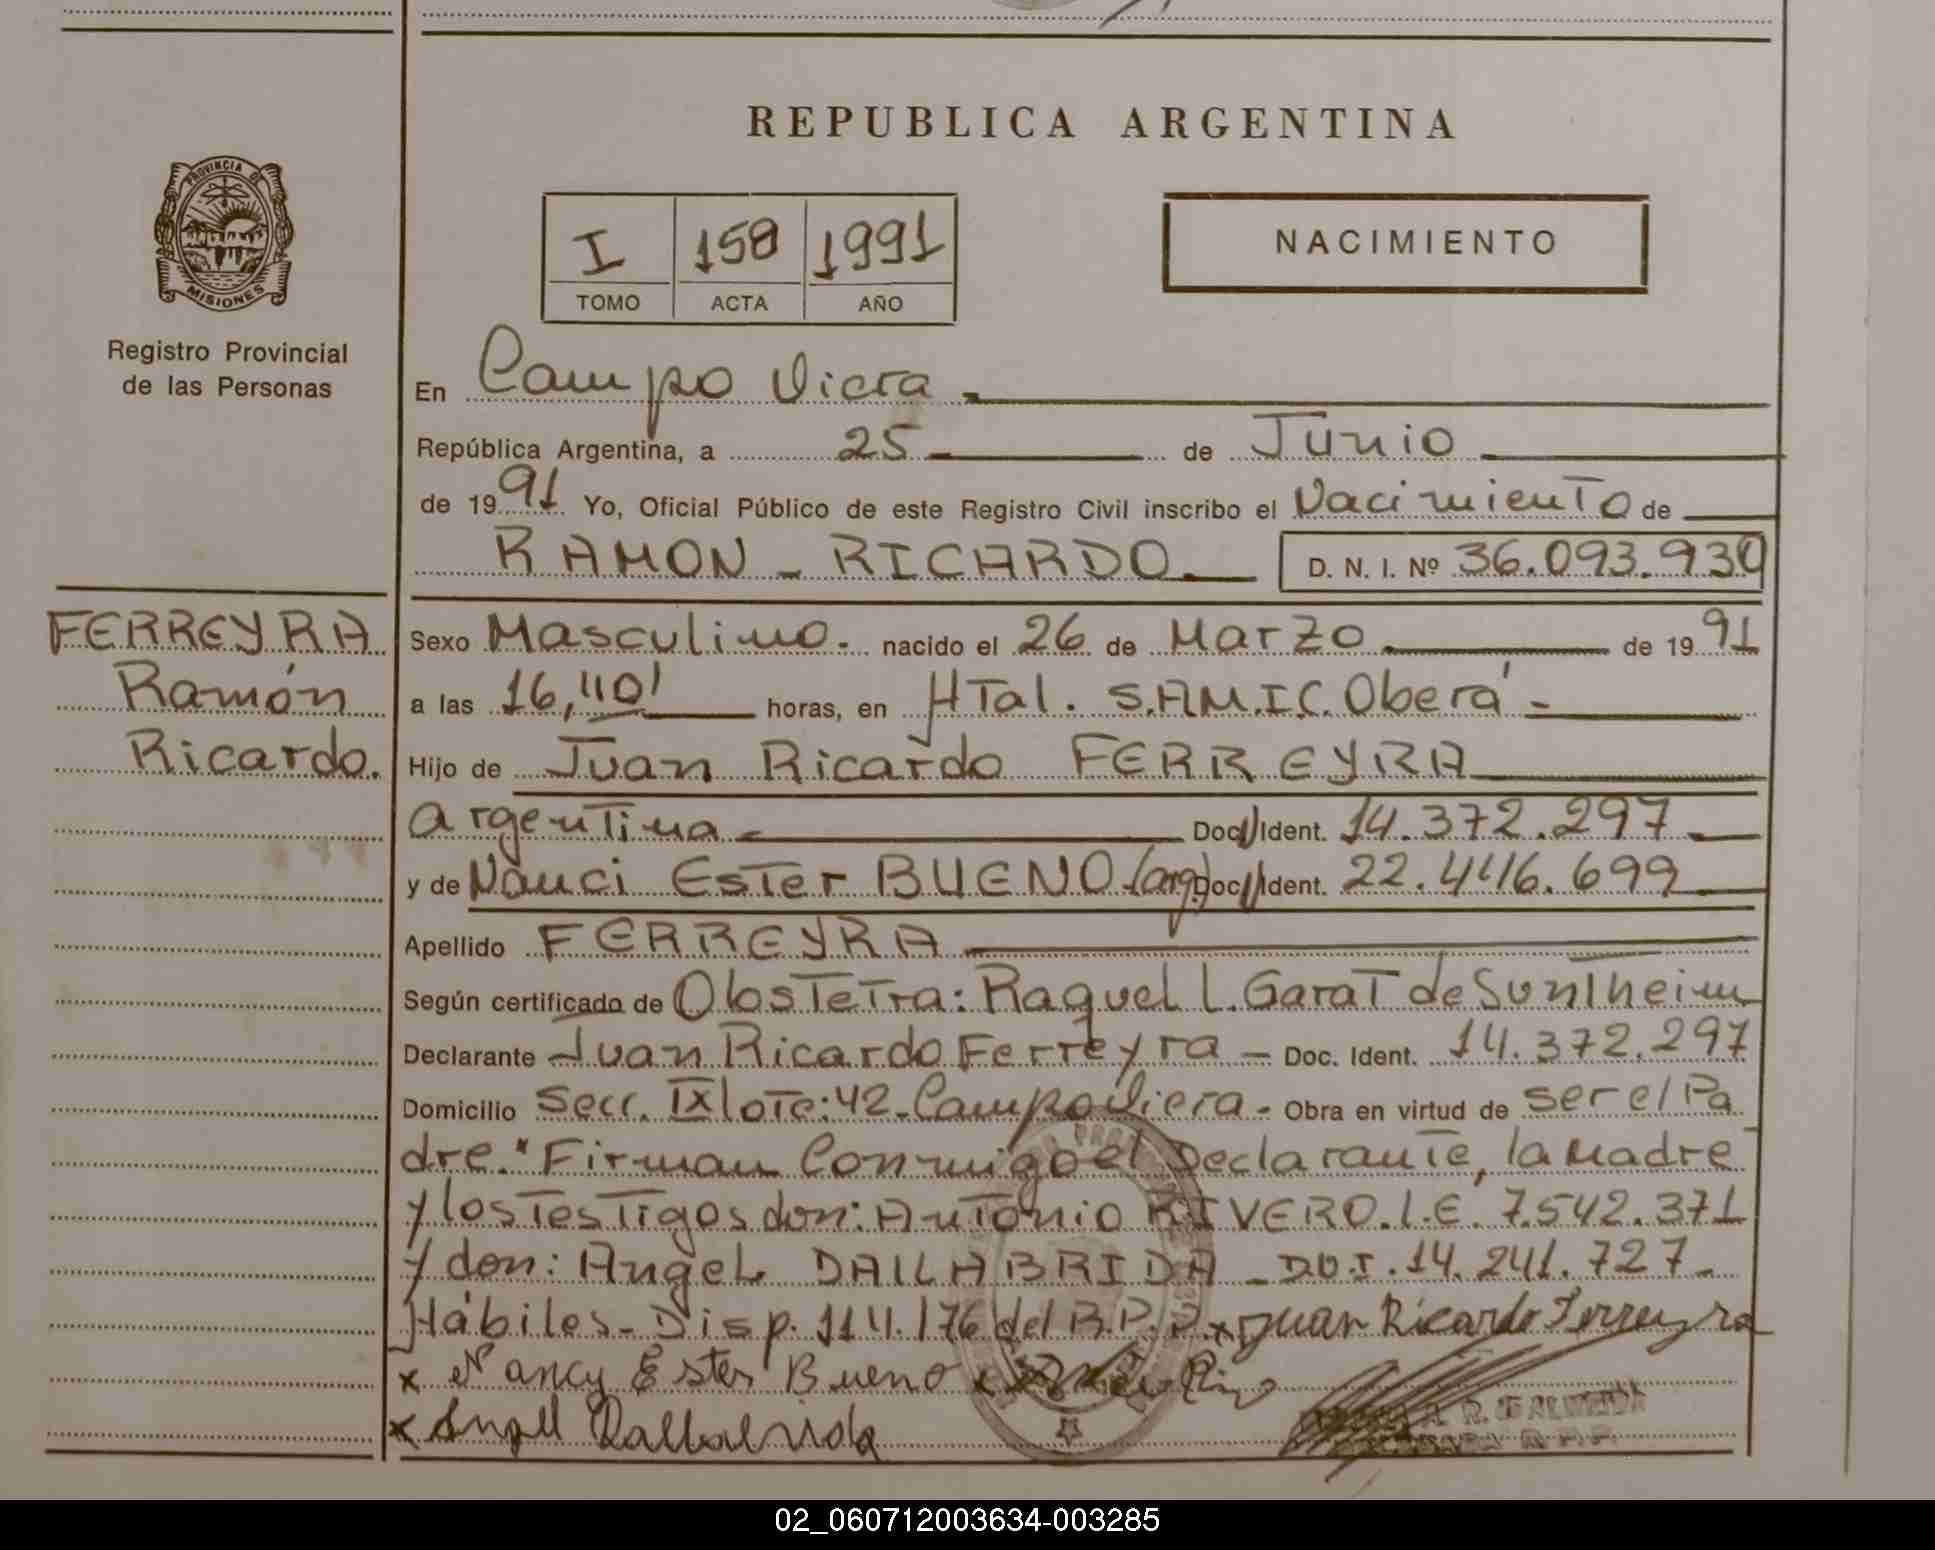 REPUBLICA ARGENTINA
PROVINCIA D MISIONES
Registro Provincial
de las Personas
I 158 1991
TOMO ACTA AÑO
NACIMIENTO
En Campo Viera
República Argentina, a 25 de Junio
de 1991 Yo, Oficial Público de este Registro Civil inscribo el Nacimiento de
RAMON - RICARDO. D. N. I. Nº 36.093.930
FERREYRA
Ramón
Ricardo.
Sexo Masculino. nacido el 26 de Marzo de 1991
a las 16,40' horas, en HTal. S.A.M.I.C. Oberá -
Hijo de Juan Ricardo FERREYRA
argentina Doc. Ident. 14.372.297
y de Nanci Ester BUENO (arg.) Doc. Ident. 22.446.699
Apellido FERREYRA
Según certificado de Obstetra: Raquel l. Garat de Suntheim
Declarante Juan Ricardo Ferreyra - Doc. Ident. 14.372.297
Domicilio Secc. IX lote: 42 - Campo Viera - Obra en virtud de ser el Pa
dre." Firman Conmigo el Declarante, la Madre
y los Testigos don: Antonio RIVERO. l.E. 7.542.371
y don: Angel DALLABRIDA - D.N.I. 14.241.727 -
Hábiles - Disp. 114/76 del R.P.P. x Juan Ricardo Ferreyra
x Nancy Ester Bueno x
x Angel Dallabrida
02_060712003634-003285